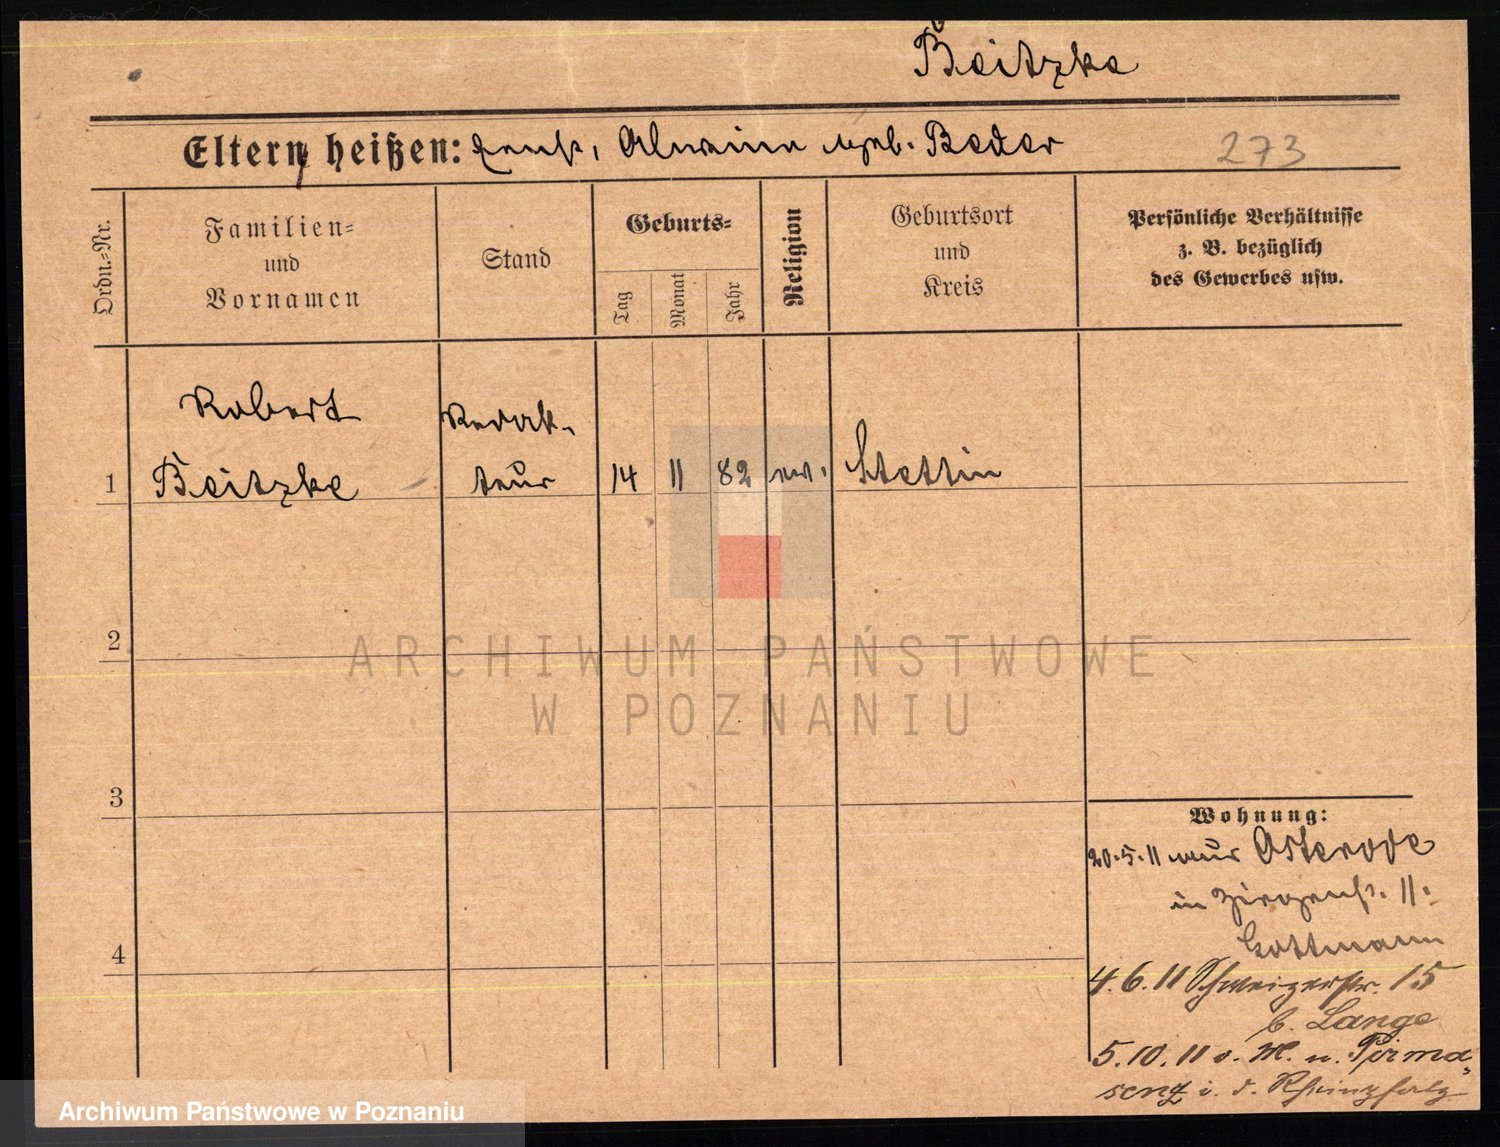 Beitzke
Eltern heißen: Ernst, Alwine geb. Beder
273
Ordn.-Nr.
Familien-
und
Vornamen
Stand
Geburts-
Tag
Monat
Jahr
Religion
Geburtsort
und
Kreis
Persönliche Verhältnisse
z. B. bezüglich
des Gewerbes usw.
Robert
Beitzke
Redak-
teur
1
14
11
82
ev.
Stettin
2
ARCHIWUM PAŃSTWOWE
W POZNANIU
3
4
Wohnung:
20.5.11 aus Osterode
in 11.
Kottmann
4.6.11 Schweizerstr. 15
b. Lange
5.10.11 v. M. n. Pirma-
senz i. d. Rheinpfalz
Archiwum Państwowe w Poznaniu